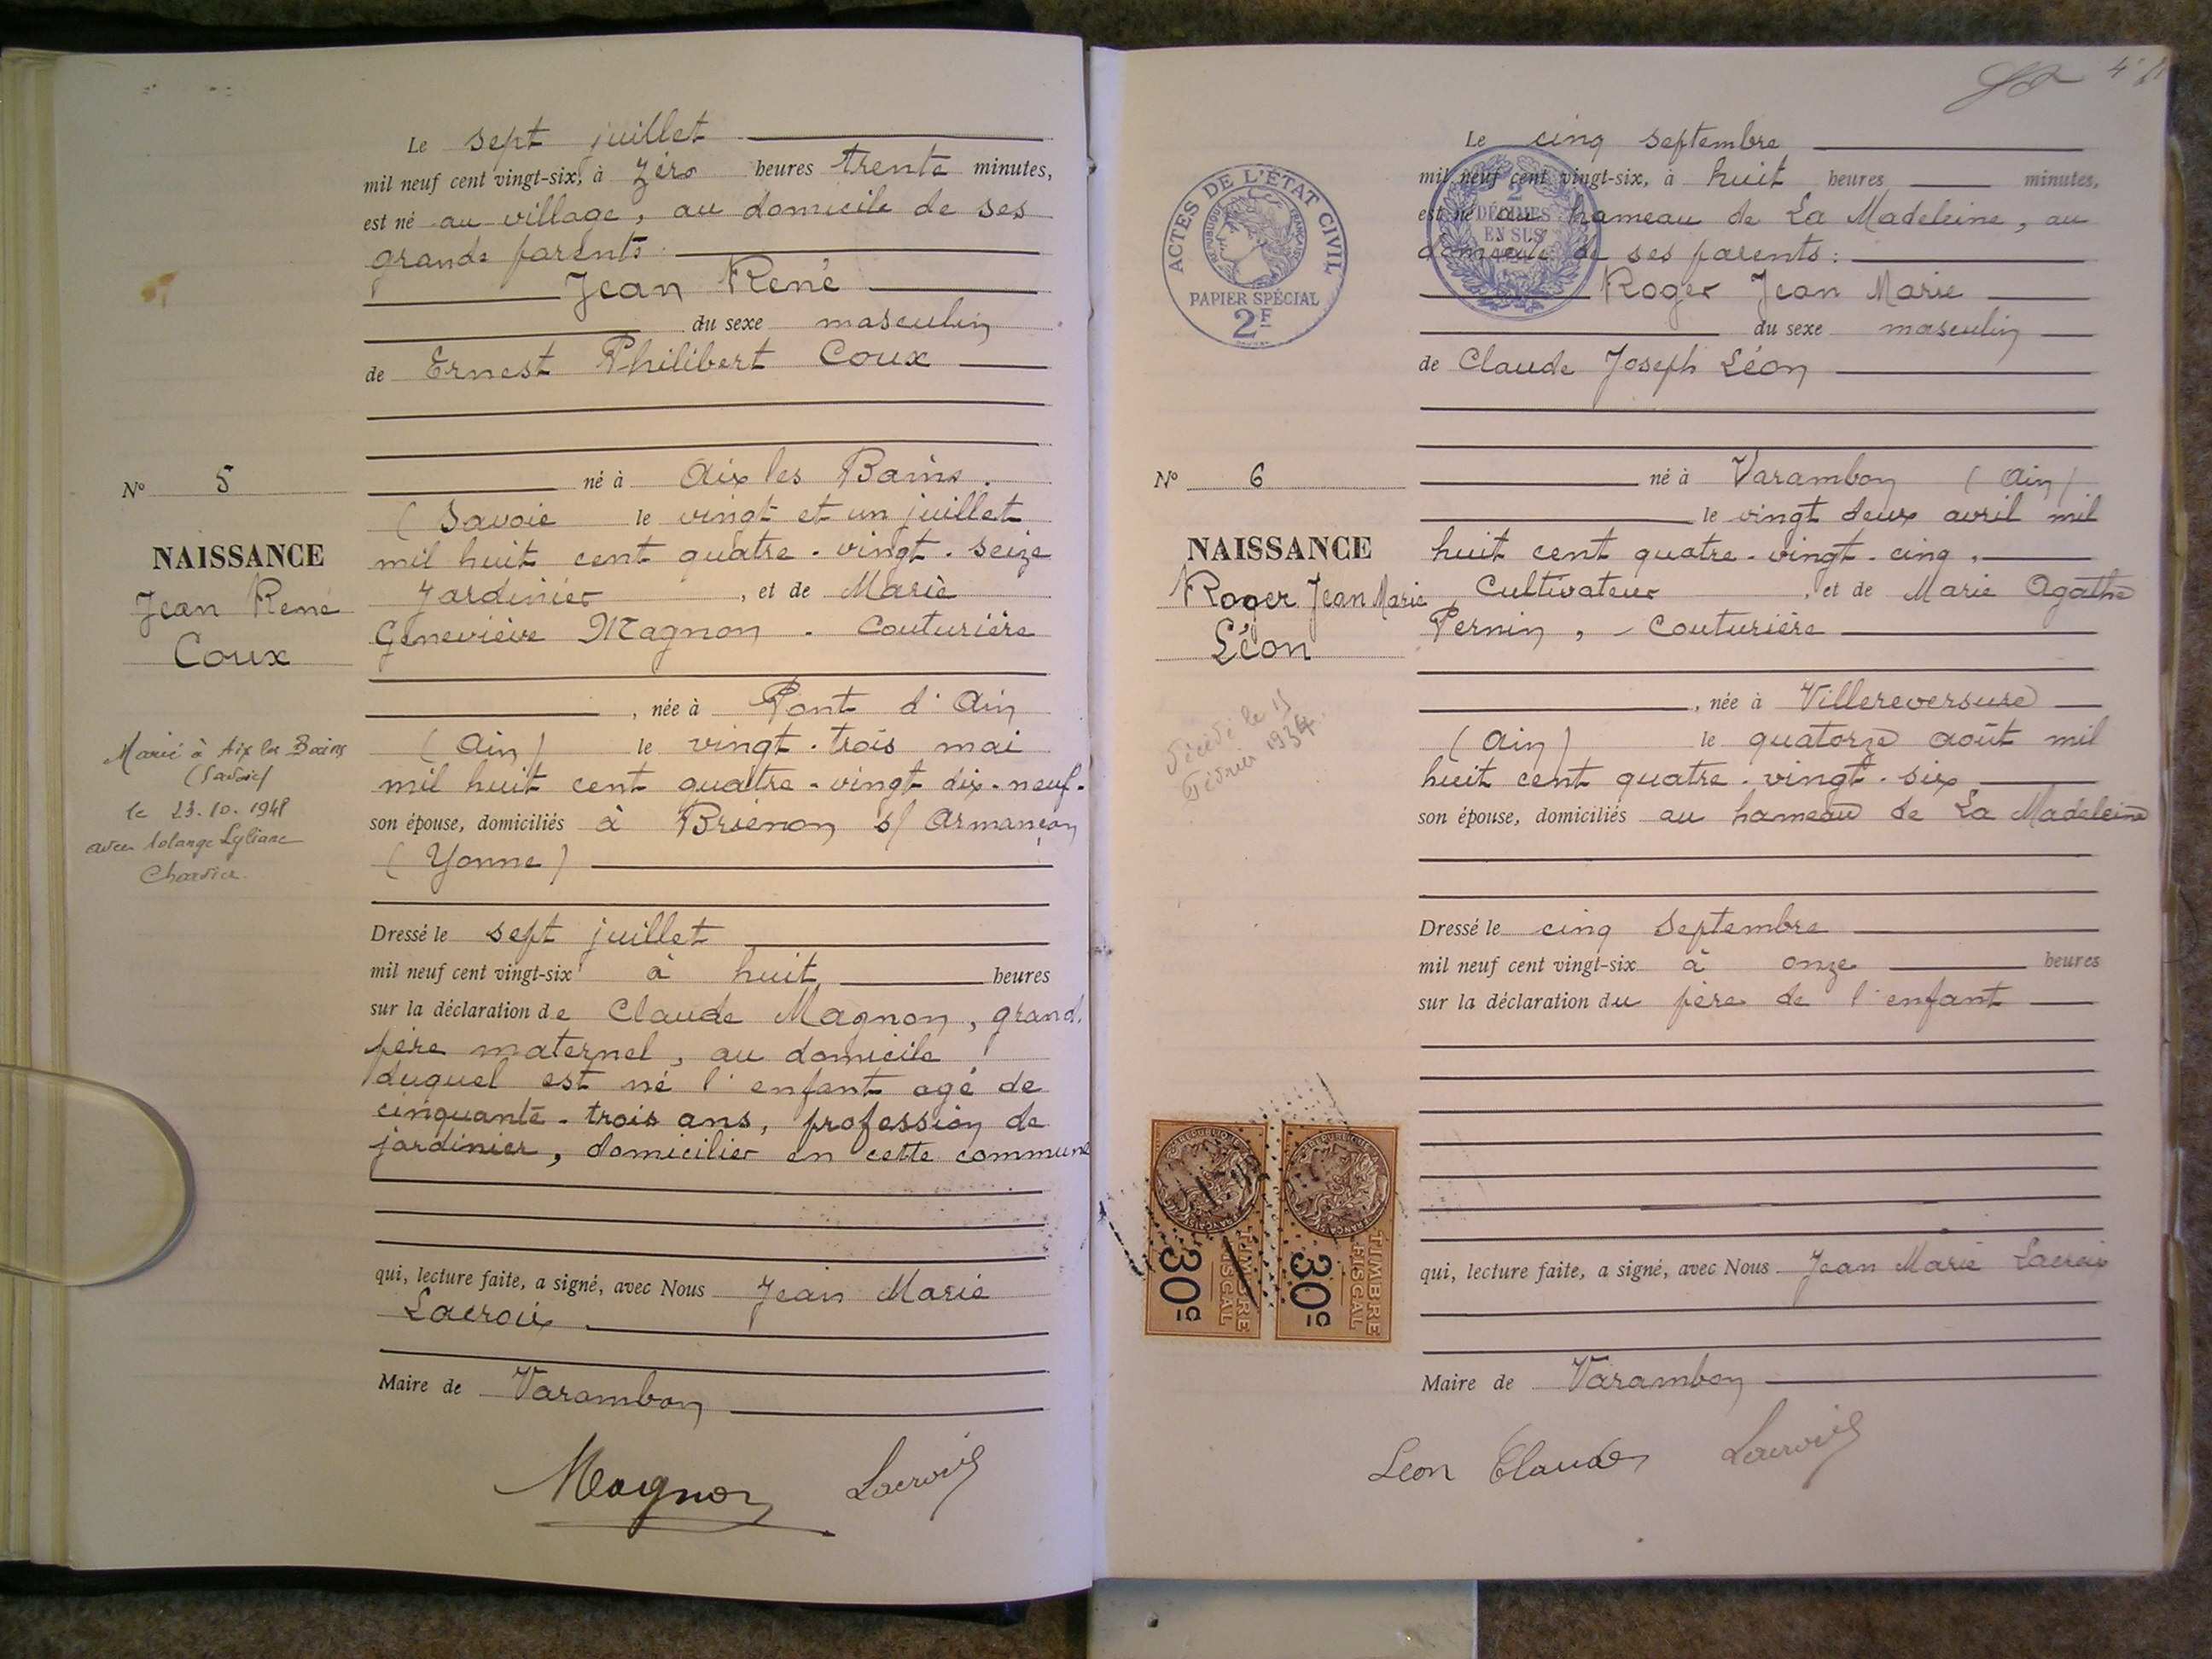 Le sept juillet
mil neuf cent vingt-six, à zéro heures trente minutes,
est né au village, au domicile de ses
grands parents :
Jean René
du sexe masculin
de Ernest Philibert Coux
né à Aix les Bains.
(Savoie le vingt et un juillet
mil huit cent quatre-vingt-seize
Jardinier, et de Marie
Geneviève Magnon. Couturière
, née à Pont d'Ain
(Ain) le vingt-trois mai
mil huit cent quatre-vingt dix-neuf.
son épouse, domiciliés à Brienon s/ Armançon
(Yonne)
Dressé le sept juillet
mil neuf cent vingt-six à huit heures
sur la déclaration de Claude Magnon, grand.
père maternel, au domicile
duquel est né l'enfant agé de
cinquante-trois ans, profession de
jardinier, domicilier en cette commune
qui, lecture faite, a signé, avec Nous Jean Marie
Lacroix.
Maire de Varambon
Magnon Lacroix
N° 5
NAISSANCE
Jean René
Coux
Marié à Aix les Bains
(Savoie)
le 23.10.1948
avec Solange Lyliane
4
Le cinq septembre
mil neuf cent vingt-six, à huit heures minutes,
est né au hameau de La Madeleine, au
domicile de ses parents :
Roger Jean Marie
du sexe masculin
de Claude Joseph Léon
né à Varambon (Ain)
le vingt deux avril mil
huit cent quatre-vingt-cinq,
Cultivateur, et de Marie Agathe
Pernin, - Couturière
, née à Villereversure
(Ain) le quatorze août mil
huit cent quatre-vingt-six
son épouse, domiciliés au hameau de La Madeleine
Dressé le cinq septembre
mil neuf cent vingt-six à onze heures
sur la déclaration du père de l'enfant
qui, lecture faite, a signé, avec Nous Jean Marie Lacroix
Maire de Varambon
Leon Claude Lacroix
ACTES DE L'ÉTAT CIVIL
RÉPUBLIQUE FRANÇAISE
PAPIER SPÉCIAL
2F
2
DÉCIMES
EN SUS
N° 6
NAISSANCE
Roger Jean Marie
Léon
Décédé le 15
Février 1934.
TIMBRE
FISCAL
30c
TIMBRE
FISCAL
30c